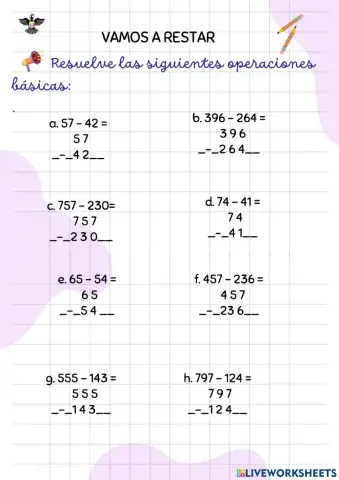 VAMOS A RESTAR
Resuelve las siguientes operaciones
básicas:
.
a. 57 – 42 =
5 7
_-_4 2__
b. 396 – 264 =
3 9 6
_-_2 6 4__
c. 757 – 230=
7 5 7
_-_2 3 0__
d. 74 – 41 =
7 4
_-_4 1__
e. 65 – 54 =
6 5
_-_5 4 __
f. 457 – 236 =
4 5 7
_-_23 6__
g. 555 – 143 =
5 5 5
_-_1 4 3__
h. 797 – 124 =
7 9 7
_-_1 2 4__
LIVEWORKSHEETS